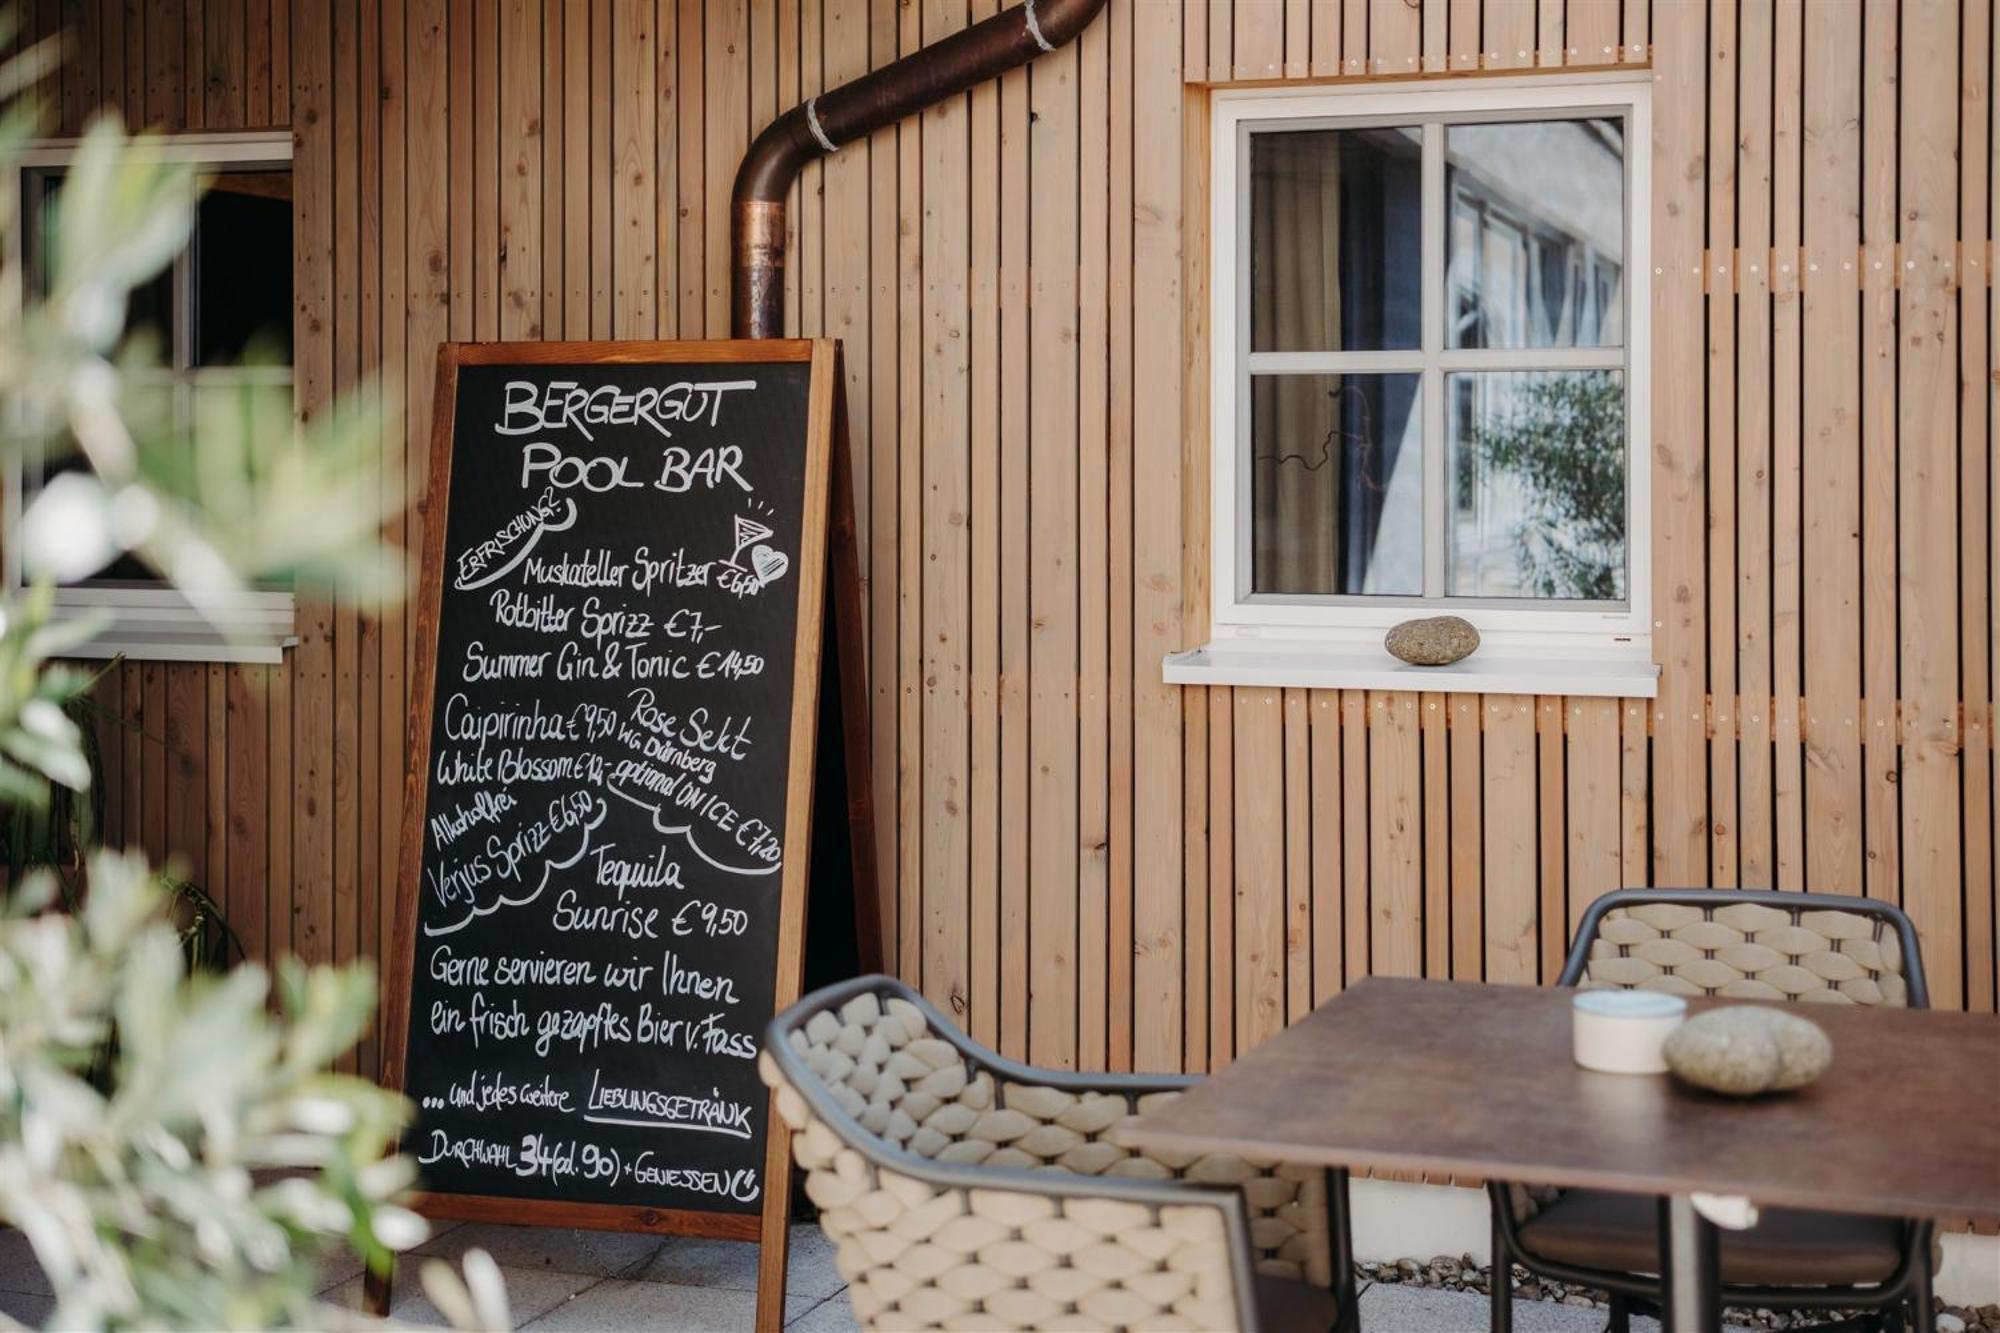 BERGERGUT
POOL BAR
ERFRISCHUNG?
Muskateller Spritzer €6,50
Rotbitter Sprizz €7,-
Summer Gin & Tonic €14,50
Caipirinha €9,50
White Blossom €12,-
Rose Sekt
WG Dürnberg
optional ON ICE €7,20
Alkoholfrei
Verjus Sprizz €6,50
Tequila
Sunrise €9,50
Gerne servieren wir Ihnen
ein frisch gezapftes Bier v. Fass
... und jedes weitere LIEBLINGSGETRÄNK
DURCHWAHL 34 (od. 90) + GENIESSEN